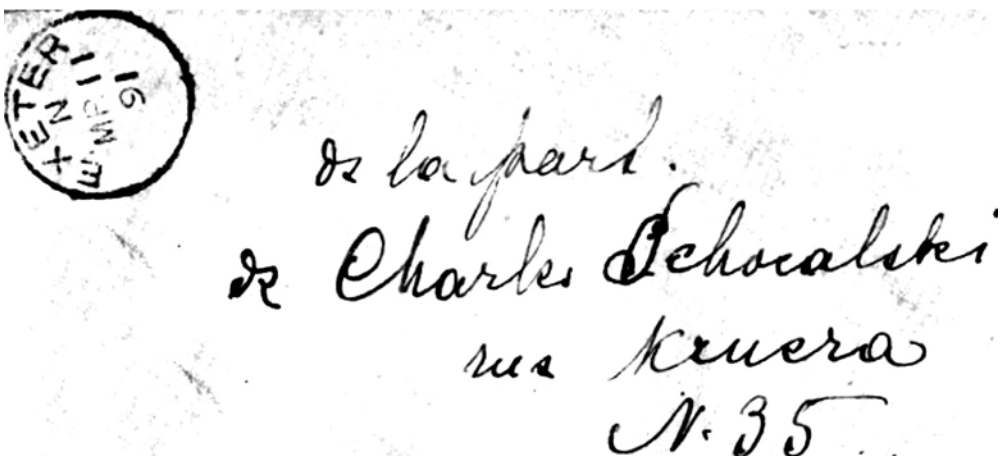 EXETER
N
MR 11
91
de la part.
de Charles Schocalski
rue Krucza
N. 35